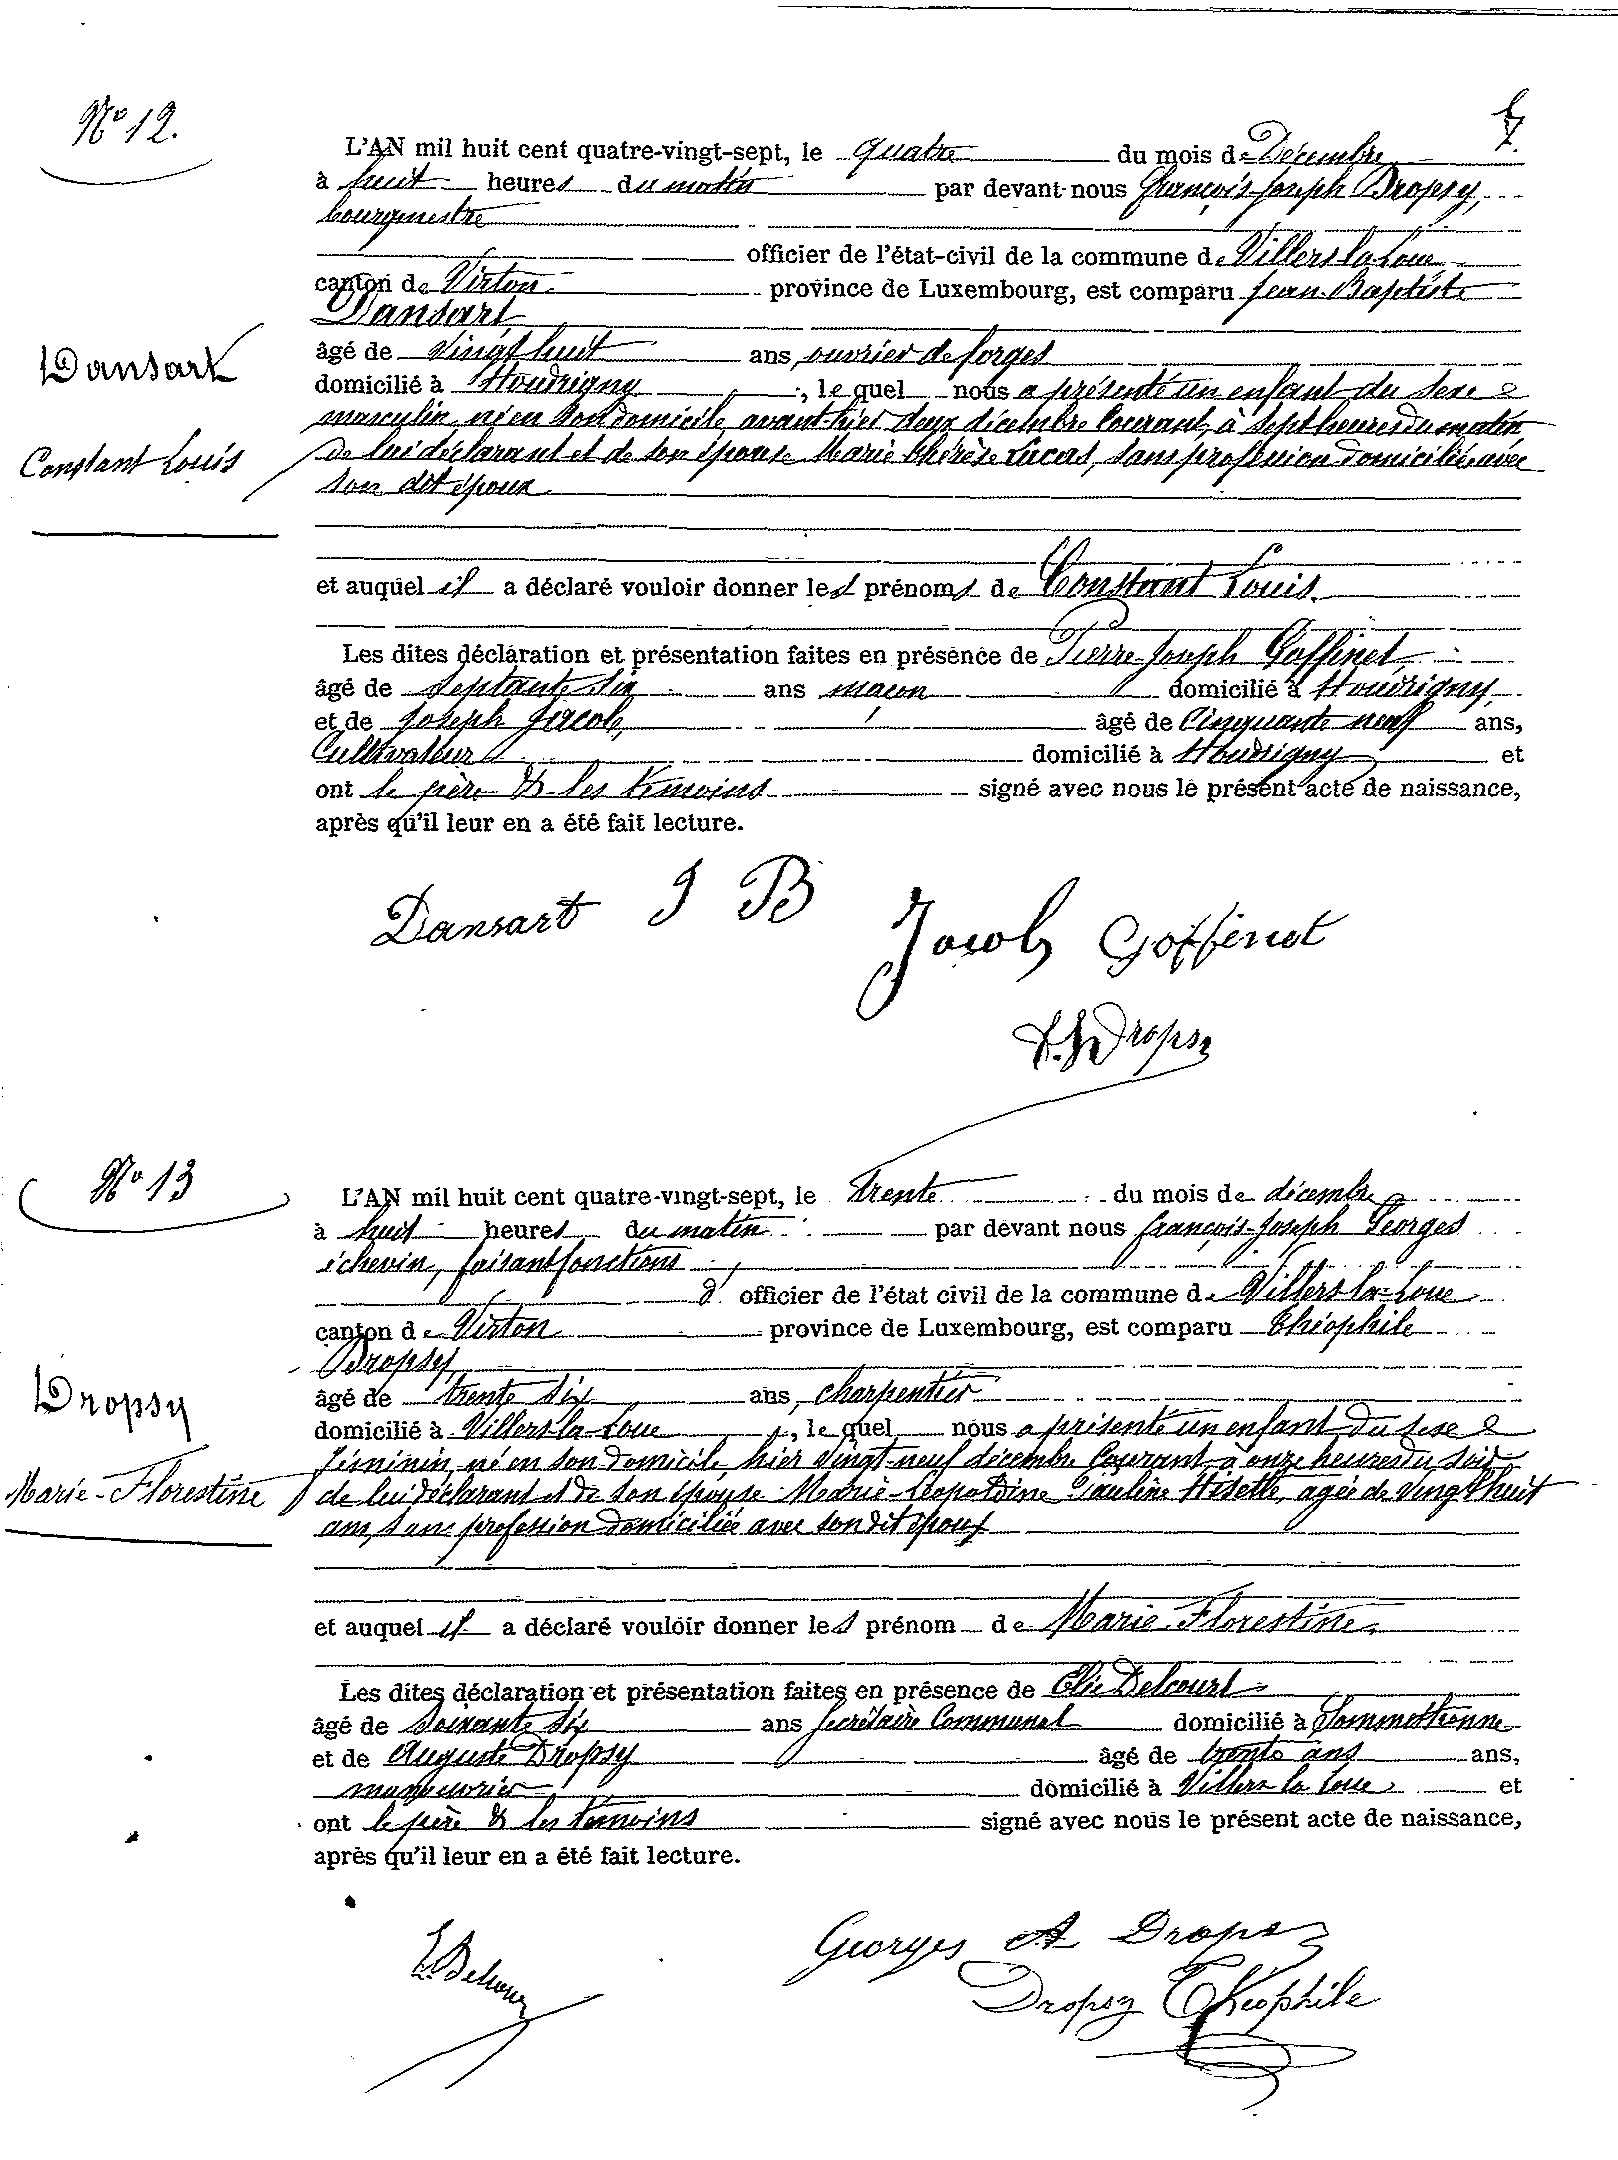 7.
Nº 12.
L'AN mil huit cent quatre-vingt-sept, le quatre du mois de Décembre
à huit heures du matin par devant nous François-Joseph Dropsy,
bourgmestre
officier de l'état-civil de la commune de Villers-la-Loue
canton de Virton province de Luxembourg, est comparu Jean-Baptiste
Dansart
âgé de vingt huit ans, ouvrier de forges
domicilié à Houdrigny, lequel nous a présenté un enfant du sexe
masculin, né en son domicile, avant-hier deux décembre courant, à sept heures du matin
de lui déclarant et de son épouse Marie Thérèse Lucas, sans profession domiciliée avec
son dit époux
Dansart
Constant Louis
et auquel il a déclaré vouloir donner les prénoms de Constant Louis.
Les dites déclaration et présentation faites en présence de Pierre-Joseph Goffinet
âgé de septante six ans maçon domicilié à Houdrigny,
et de Joseph Jacob, âgé de Cinquante neuf ans,
Cultivateur domicilié à Houdrigny et
ont le père & les témoins signé avec nous le présent acte de naissance,
après qu'il leur en a été fait lecture.
Dansart J B Jacob Goffinet
F. J Dropsy
Nº 13
L'AN mil huit cent quatre-vingt-sept, le trente du mois de décembre
à huit heures du matin par devant nous François-Joseph Georges
échevin, faisant fonctions
d' officier de l'état civil de la commune de Villers-la-Loue
canton de Virton province de Luxembourg, est comparu Théophile
Dropsy,
âgé de trente six ans, charpentier
domicilié à Villers-la-Loue, lequel nous a présenté un enfant du sexe
féminin, né en son domicile, hier vingt-neuf décembre courant, à onze heures du soir
de lui déclarant et de son épouse Marie-Léopoldine Pauline Hisette, agée de vingt huit
ans, sans profession domiciliée avec son dit époux
Dropsy
Marie-Florestine
et auquel il a déclaré vouloir donner les prénom de Marie-Florestine.
Les dites déclaration et présentation faites en présence de Elie Delcourt
âgé de soixante six ans secrétaire Communal domicilié à Sommethonne
et de Auguste Dropsy âgé de trente ans ans,
manœuvrier domicilié à Villers la Loue et
ont le père & les témoins signé avec nous le présent acte de naissance,
après qu'il leur en a été fait lecture.
E. Delcour Georges A Dropsy
Dropsy Théophile